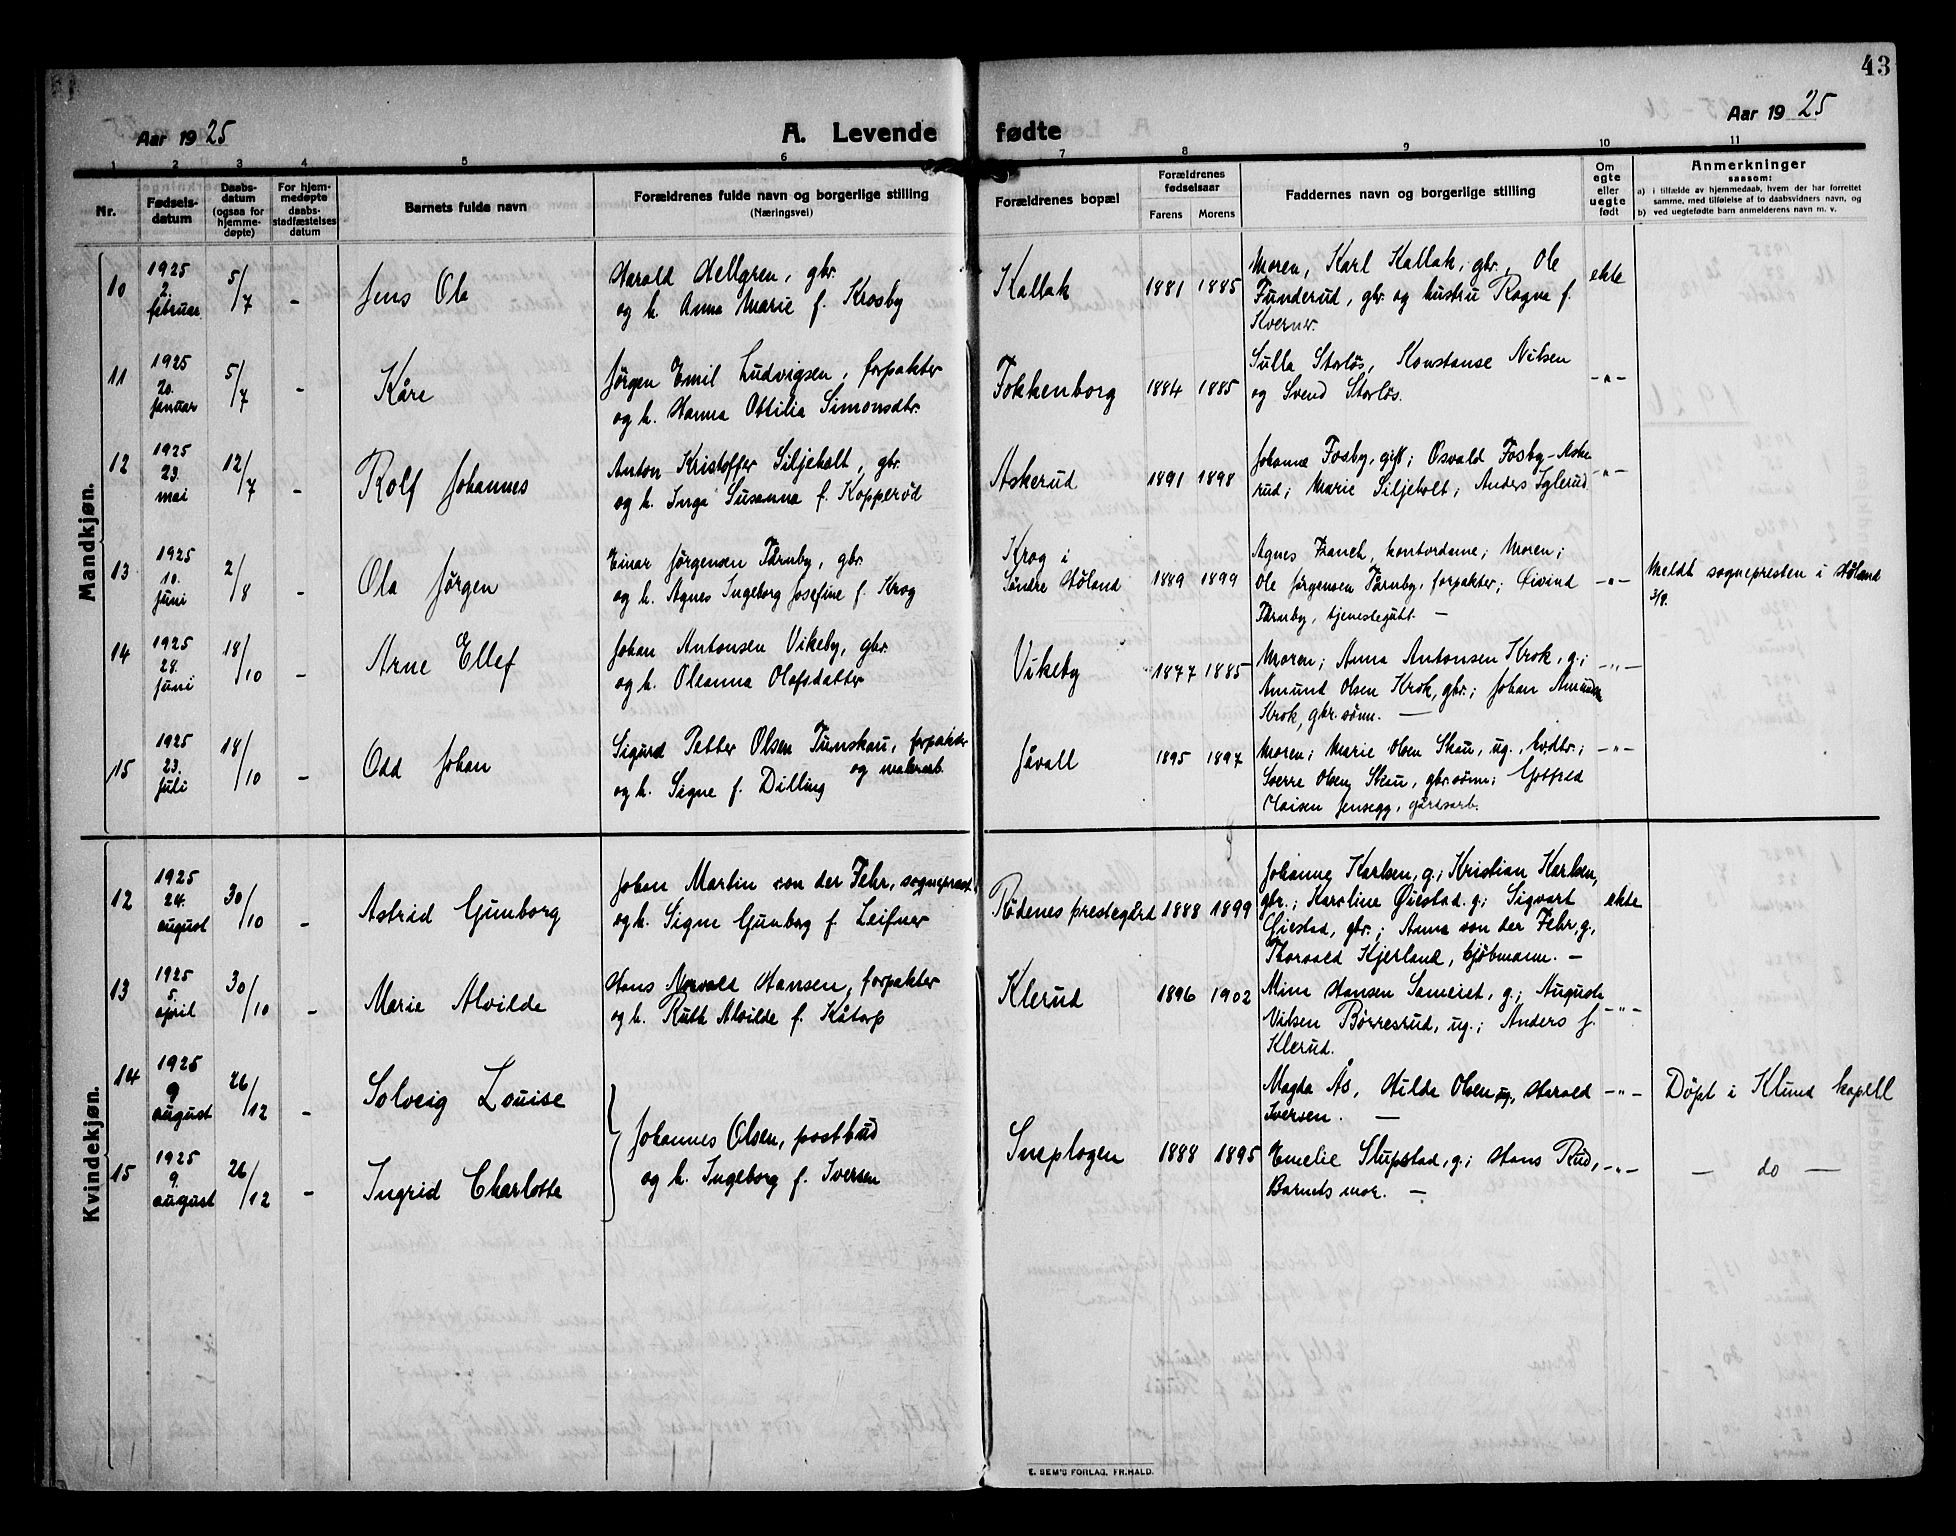 43
Aar 1925
A. Levende fødte
Aar 1925
1 2 3 4 5 6 7 8 9 10 11
Nr.
Fødsels-
datum
Daabs-
datum
(ogsaa for
hjemme-
døpte)
For hjem-
medøpte
daabs-
stadfæstelses
datum
Barnets fulde navn
Forældrenes fulde navn og borgerlige stilling
(Næringsvei)
Forældrenes bopæl
Forældrenes
fødselsaar
Farens Morens
Faddernes navn og borgerlige stilling
Om
egte
eller
uegte
født
Anmerkninger
saasom:
a) i tilfælde av hjemmedaab, hvem der har forrettet
samme, med tilføielse af to daabsvidners navn, og
b) ved uegtefødte barn anmelderens navn m. v.
Mandkjøn.
10
1925
2.
februar
5/7
-
Jens Ola
Harald Hellgren, gbr.
og h. Anna Marie f. Krosby
Kallak
1881 1885
Moren, Karl Kallak, gbr., Ole
Funderud, gbr. og hustru Ragna f.
Kverner.
ekte
11
1925
20.
januar
5/7
-
Kåre
Jørgen Emil Ludvigsen, forpakter
og h. Hanna Ottilia Simonsdtr.
Fokkenborg
1884 1885
Sulla Storløs, Konstanse Nilsen
og Svend Storløs.
-"-
12
1925
23.
mai
12/7
-
Rolf Johannes
Anton Kristoffer Siljeholt, gbr.
og h. Inga Susanna f. Kopperød
Askerud
1891 1898
Johanne Fosby, gift; Osvald Fosby-Aske
rud; Marie Siljeholt; Anders Iglerud
-"-
13
1925
10.
juni
2/8
-
Ola Jørgen
Einar Jørgensen Tårnby, gbr.
og h. Agnes Ingeborg Josefine f. Krog
Krog i
Søndre Høland
1889 1899
Agnes Franch, kontordame; Moren;
Ole Jørgensen Tårnby, forpakter; Øivind
Tårnby, tjenestegutt. —
-"-
Meldt sognepresten i Høland
3/9.
14
1925
28.
juni
18/10
-
Arne Ellef
Johan Antonsen Vikeby, gbr.
og h. Oleanna Olafsdatter
Vikeby
1877 1885
Moren; Anna Antonsen Krok, g.;
Amund Olsen Krok, gbr.; Johan Amundsen
Krok, gbr. sønn. —
-"-
15
1925
23.
juli
18/10
-
Odd Johan
Sigurd Petter Olsen Tunskau, forpakter
og malerarb.
og h. Signe f. Dilling
Jåvall
1895 1897
Moren; Marie Olsen Skau, ug., hvdtr.;
Sverre Olsen Skau, gbr. sønn; Gotfred
Olaisen Jensegg, gårdsarb.
-"-
Kvindekjøn.
12
1925
24.
august
30/10
-
Astrid Gunborg
Johan Martin von der Fehr, sogneprest
og h. Signe Gunborg f. Leifner
Rødenes prestegård
1888 1899
Johanne Karlsen, g.; Kristian Karlsen,
gbr.; Karoline Øiestad. g; Sigvart
Øiestad, gbr.; Anna von der Fehr, g.,
Thorvald Kjerland, kjøbmann. —
ekte
13
1925
5.
april
30/10
-
Marie Alvilde
Hans Norvald Hansen, forpakter
og h. Ruth Alvilde f. Kåtorp
Klerud
1896 1902
Mina Hansen Sameiet, g.; Auguste
Nilsen Børresrud, ug.; Anders J.
Klerud.
-"-
14
1925
9
august
26/12
-
Solveig Louise
Magda Ås, Hilda Olsen ug., Harald
Iversen. —
-"-
Døpt i Klund kapell
Johannes Olsen, postbud
og h. Ingeborg f. Iversen
Sneplogen
1888 1895
15
1925
9.
august
26/12
-
Ingrid Charlotte
Emelie Slupstad, g.; Hans Rud,
Barnets mor. —
-"-
— do —
E. SEM'S FORLAG, FR.HALD.